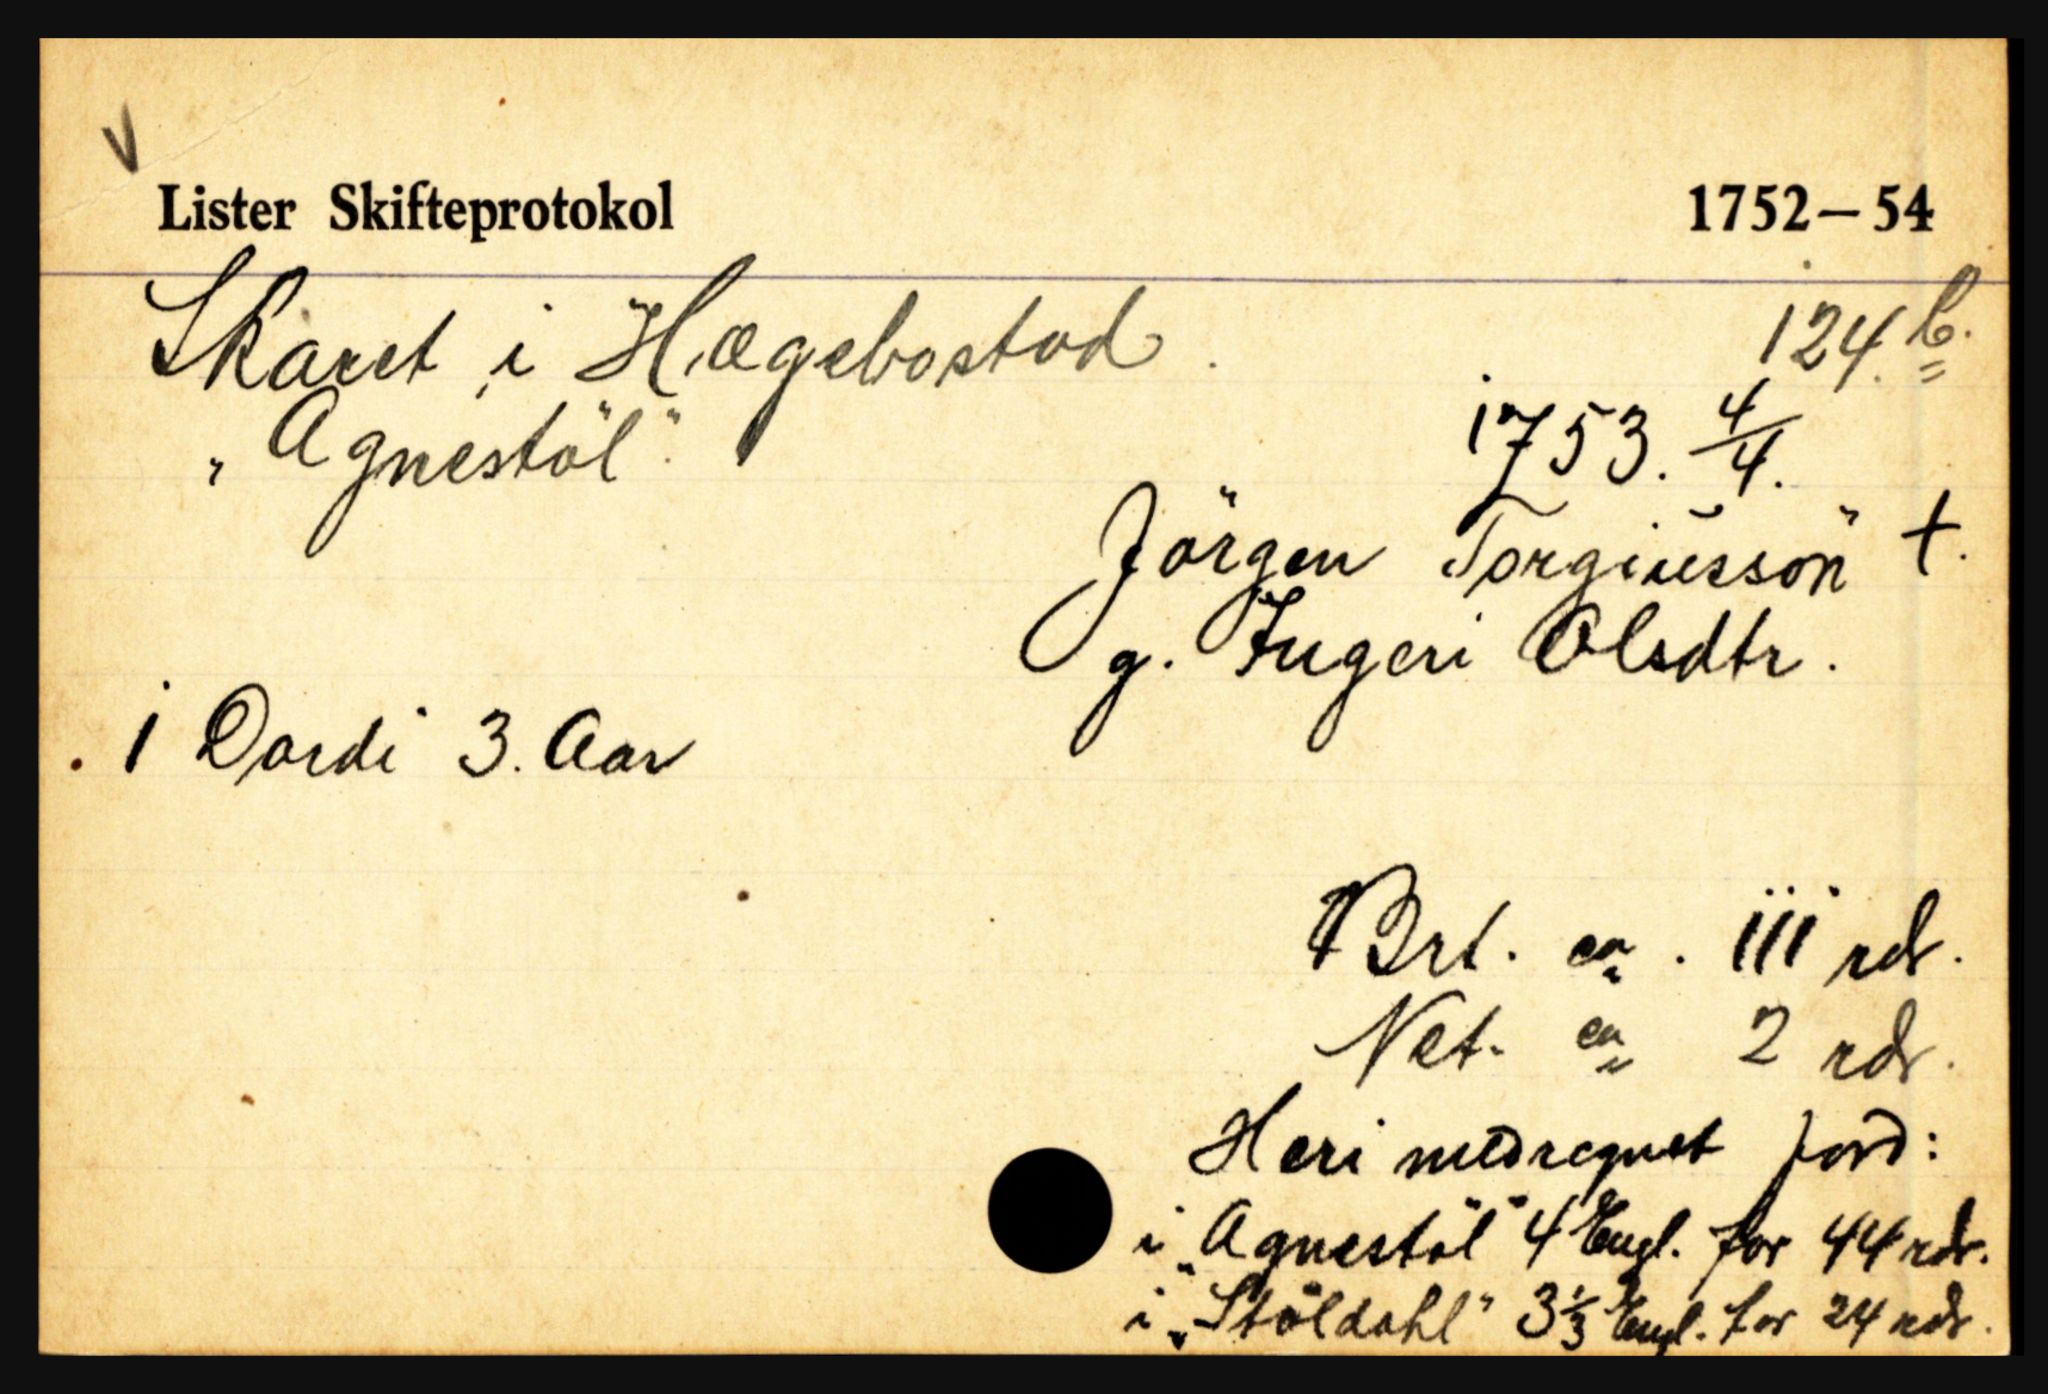 V
Lister Skifteprotokol 1752–54
Skaret i Hægebostad. 124.b.
„Agnestöl". 1753. 4/4.
Jörgen Torgiüssön †.
g. Ingeri Olsdtr.
1 Dordi 3. Aar
Brt. ca. 111 rdr.
Net. ca 2 rdr.
Heri medregnet jord:
i „Agnestöl" 4 Engl. for 44 rdr.
i „Stöldahl" 3 1/3 Engl. for 24 rdr.